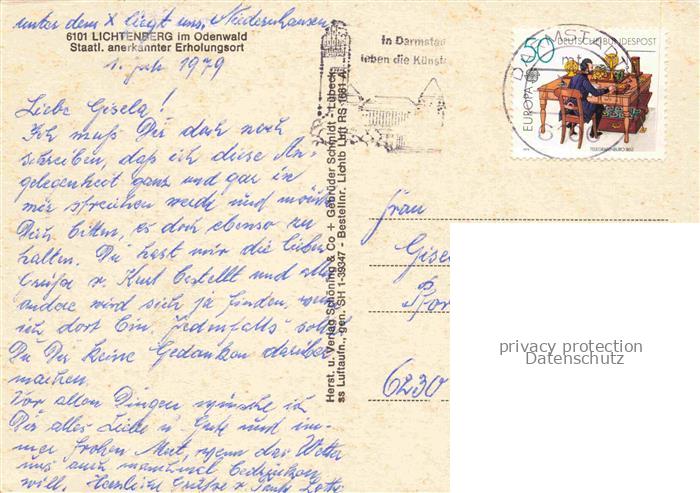 unter dem X liegt uns. Niedernhausen
6101 LICHTENBERG im Odenwald
Staatl. anerkannter Erholungsort
1. Juli 1979
Liebe Gisela!
Ich muß Dir doch noch
schreiben, daß ich diese An-
gelegenheit ganz und gar in
mir streichen werde und möchte
Dich bitten, es doch ebenso zu
halten. Du hast mir die lieben
Grüße v. Kurt bestellt und alles
andere wird sich ja finden, wenn
ich dort bin. Jedenfalls sollst
Du Dir keine Gedanken darüber
machen.
Vor allen Dingen wünsche ich
Dir alles Liebe u. Gute und im-
mer frohen Mut, wenn das Wetter
uns auch manchmal bedrücken
will. Herzliche Grüße v. Tante Lotte
Herst. u. Verlag Schöning & Co + Gebrüder Schmidt - Lübeck
ss Luftaufn., gen. SH 1-39347 - Bestellnr. Lichtb Luft RS 1661 A
In Darmstad
leben die Künst
DARMSTA
50
DEUTSCHE BUNDESPOST
EUROPA CEPT
TELEGRAFENBÜRO 1863
Frau
Gise
6230
privacy protection
Datenschutz